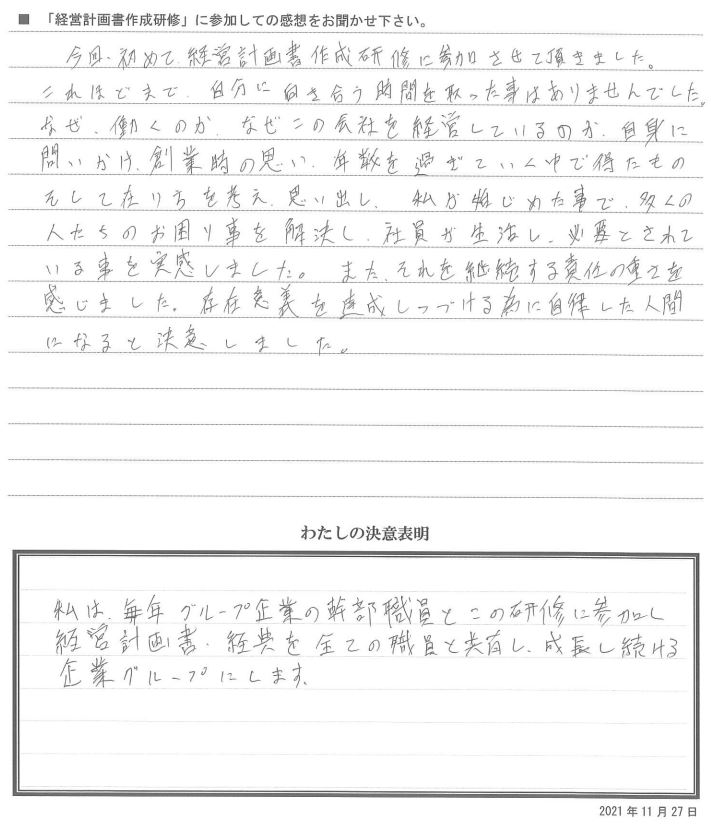 ■ 「経営計画書作成研修」に参加しての感想をお聞かせ下さい。
今回、初めて、経営計画書作成研修に参加させて頂きました。
これほどまで、自分に向き合う時間を取った事はありませんでした。
なぜ、働くのか、なぜこの会社を経営しているのか、自身に
問いかけ、創業時の思い、年数を過ぎていく中で得たもの
そして在り方を考え、思い出し、私が始じめた事で、多くの
人たちのお困り事を解決し、社員が生活し、必要とされて
いる事を実感しました。また、それを継続する責任の重さを
感じました。存在意義を達成しつづける為に自律した人間
になると決意しました。
わたしの決意表明
私は、毎年グループ企業の幹部職員とこの研修に参加し
経営計画書、経典を全ての職員と共有し、成長し続ける
企業グループにします。
2021 年 11 月 27 日